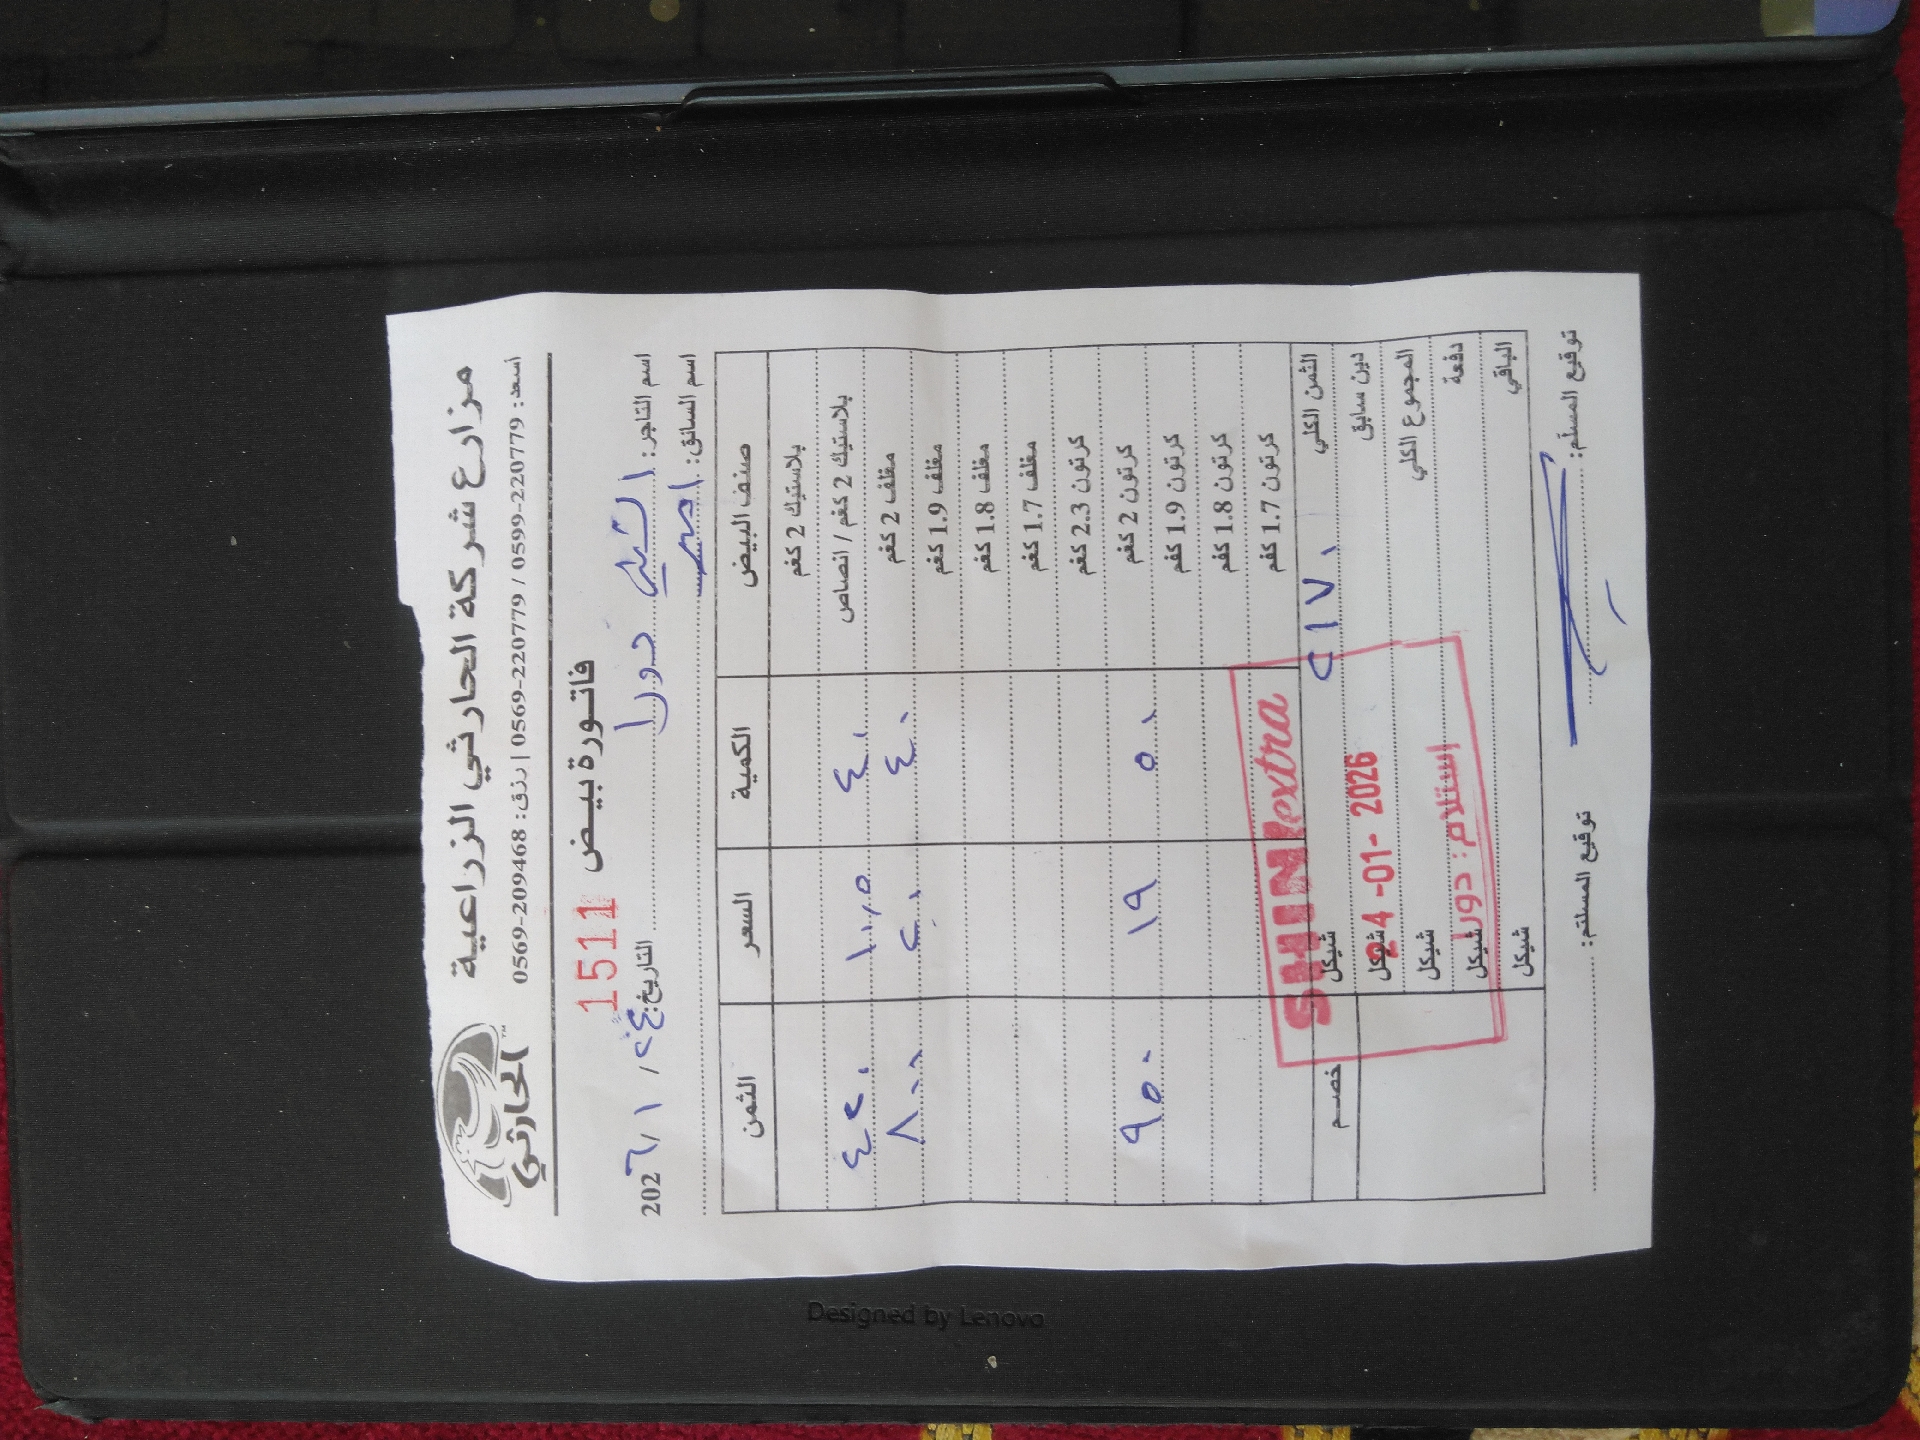 مزارع شركة الحارثي الزراعية
الحارثي
أسعد: 0599-220779 / 0569-220779 | رزق: 0569-209468
فاتورة بيض
1511
اسم التاجر: دورا
التاريخ: ٢٤ / ١ / 202٦
اسم السائق:
صنف البيض الكمية السعر الثمن
بلاستيك 2 كغم
بلاستيك 2 كغم / انصاص ٤٠ ١٠,٥ ٤٢٠
مغلف 2 كغم ٤٠ ٢٠ ٨٠٠
مغلف 1.9 كغم
مغلف 1.8 كغم
مغلف 1.7 كغم
كرتون 2.3 كغم
كرتون 2 كغم ٥٠ ١٩ ٩٥٠
كرتون 1.9 كغم
كرتون 1.8 كغم
كرتون 1.7 كغم
الثمن الكلي ٢١٧٠ شيكل خصم
دين سابق شيكل
المجموع الكلي شيكل
دفعة شيكل
الباقي شيكل
SHINI extra
24 -01- 2026
استلام: دورا
توقيع المسلم: توقيع المستلم:
Designed by Lenovo